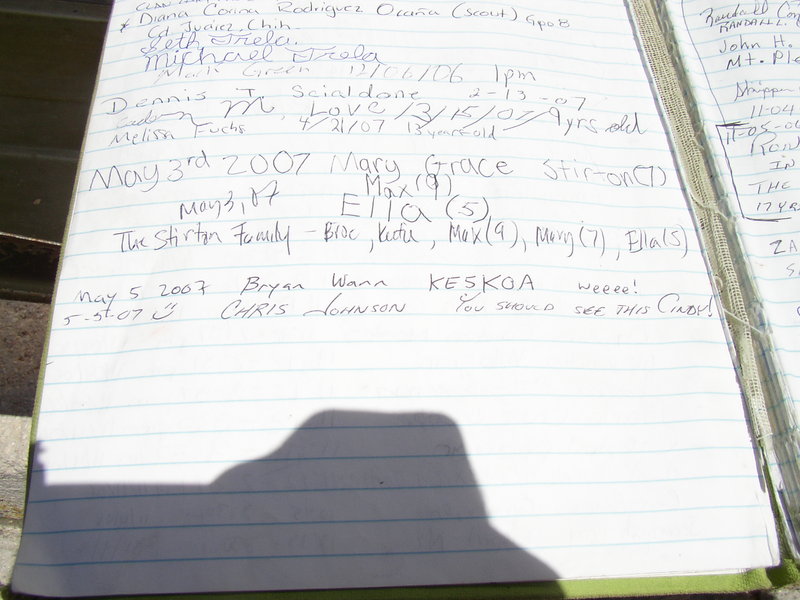 * Diana Corina Rodriguez Ocaña (scout) Gpo 8
Cd Juárez, Chih.
Seth Trela.
Michael Trela
Mark Green 12/06/06 1pm
Dennis T. Scialdone 2-13-07
M. Love 3/15/07 / 9 yrs old
Melissa Fuchs 4/21/07 13 years old
May 3rd 2007 Mary Grace Stirton (7)
Max (9)
May 3, 07 Ella (5)
The Stirton Family - Broc, Katie, Max (9), Mary (7), Ella (5)
May 5 2007 Bryan Wann KE5KOA weeee!
5-5-07 CHRIS JOHNSON YOU SHOULD SEE THIS CINDY!
Randall
RANDALL
John H.
Mt. Ple
11-04
11-05-0
IN
THE
17 YR